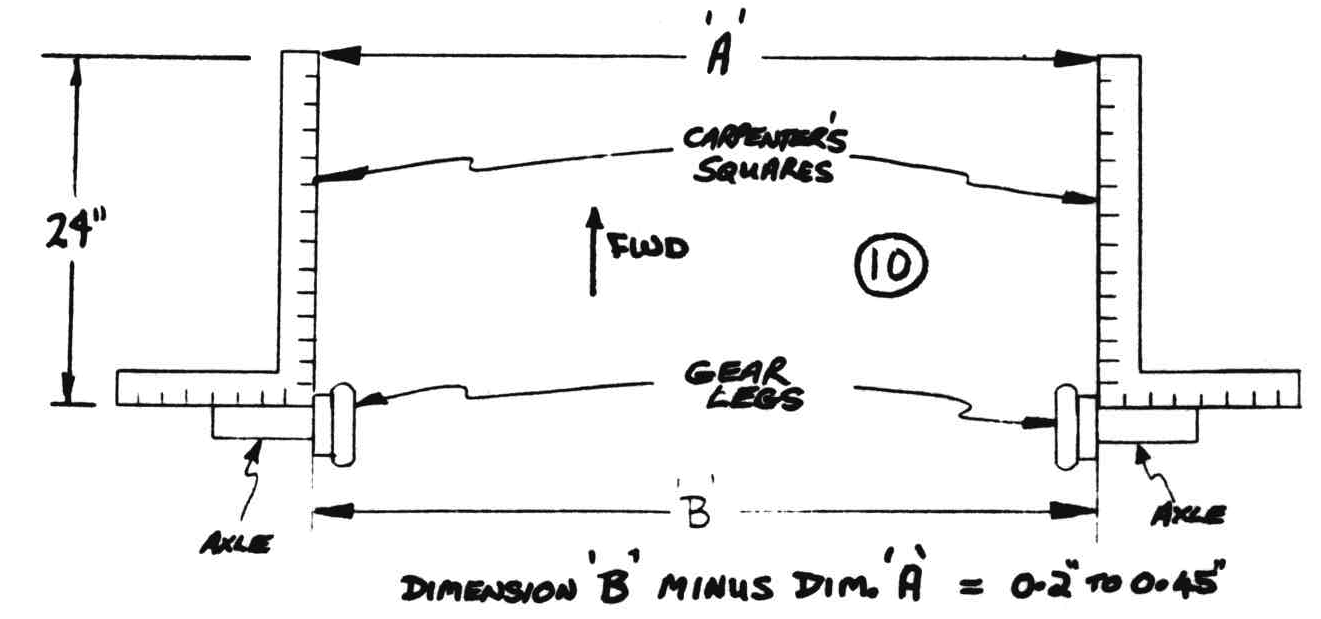 'A'
CARPENTER'S
SQUARES
24"
FWD
10
GEAR
LEGS
'B'
AXLE
AXLE
DIMENSION 'B' MINUS DIM. 'A' = 0.2" TO 0.45"